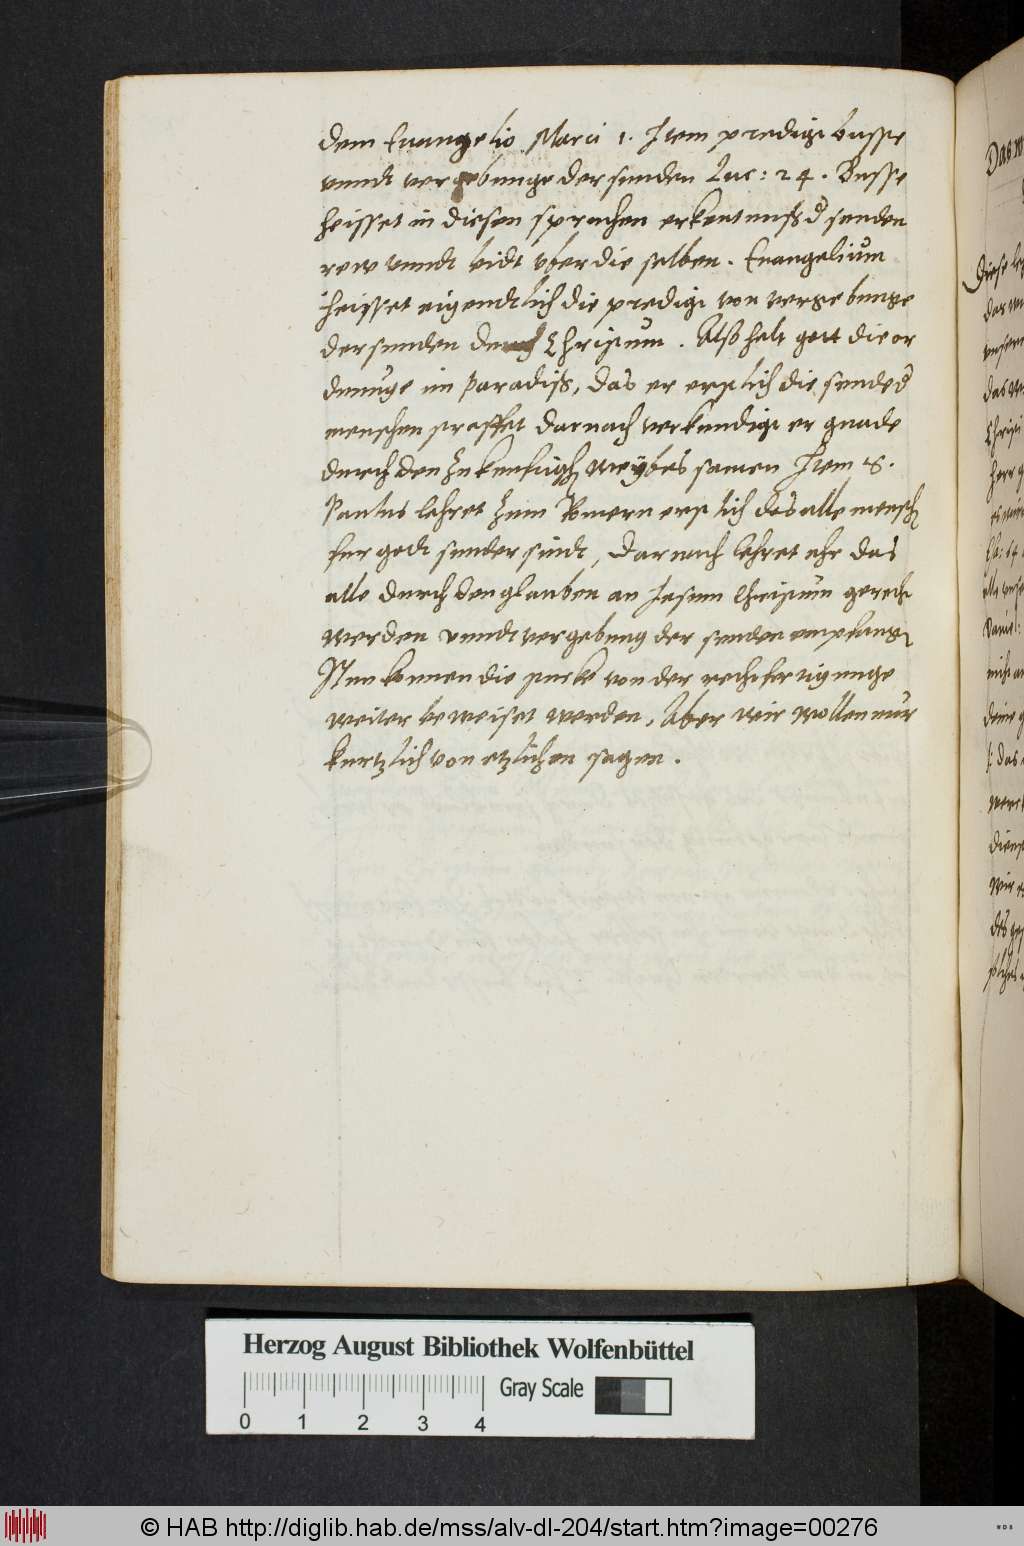 dem Euangelio Marci 1. Item predigt busse
vnndt vergebunge der sunden Luc: 24. Busse
heisset in diesen spruchen erkentnuß d sunden
rew vnndt leidt vber die selben. Euangelium
heisset eigendtlich die predigt von vergebunge
der sunden durch Christum. Also helt gott die or
dnunge im Paradiß, das er erstlich die sunde d
menschen straffet darnach verkundigt er gnade
durch den zukunfftigen Weybes samen Item S.
Paulus lehret zun Romern erstlich das alle mensch
fur gedt sunder sindt, Darnach lehret ehr das
alle durch den glauben an Jesum Christum gerecht
werden vnndt vergebung der sunden empfang
Nun konnen die stucke von der rechtfertigunge
weiter beweiset werden, Aber wir wollen nur
kurtzlich von etzlichen sagen.
Das
Diese
das
das
Christi
Herr
Daniel:
mich
deine
das
werck
dienst
wir
des
Herzog August Bibliothek Wolfenbüttel
Gray Scale
0 1 2 3 4
© HAB http://diglib.hab.de/mss/alv-dl-204/start.htm?image=00276